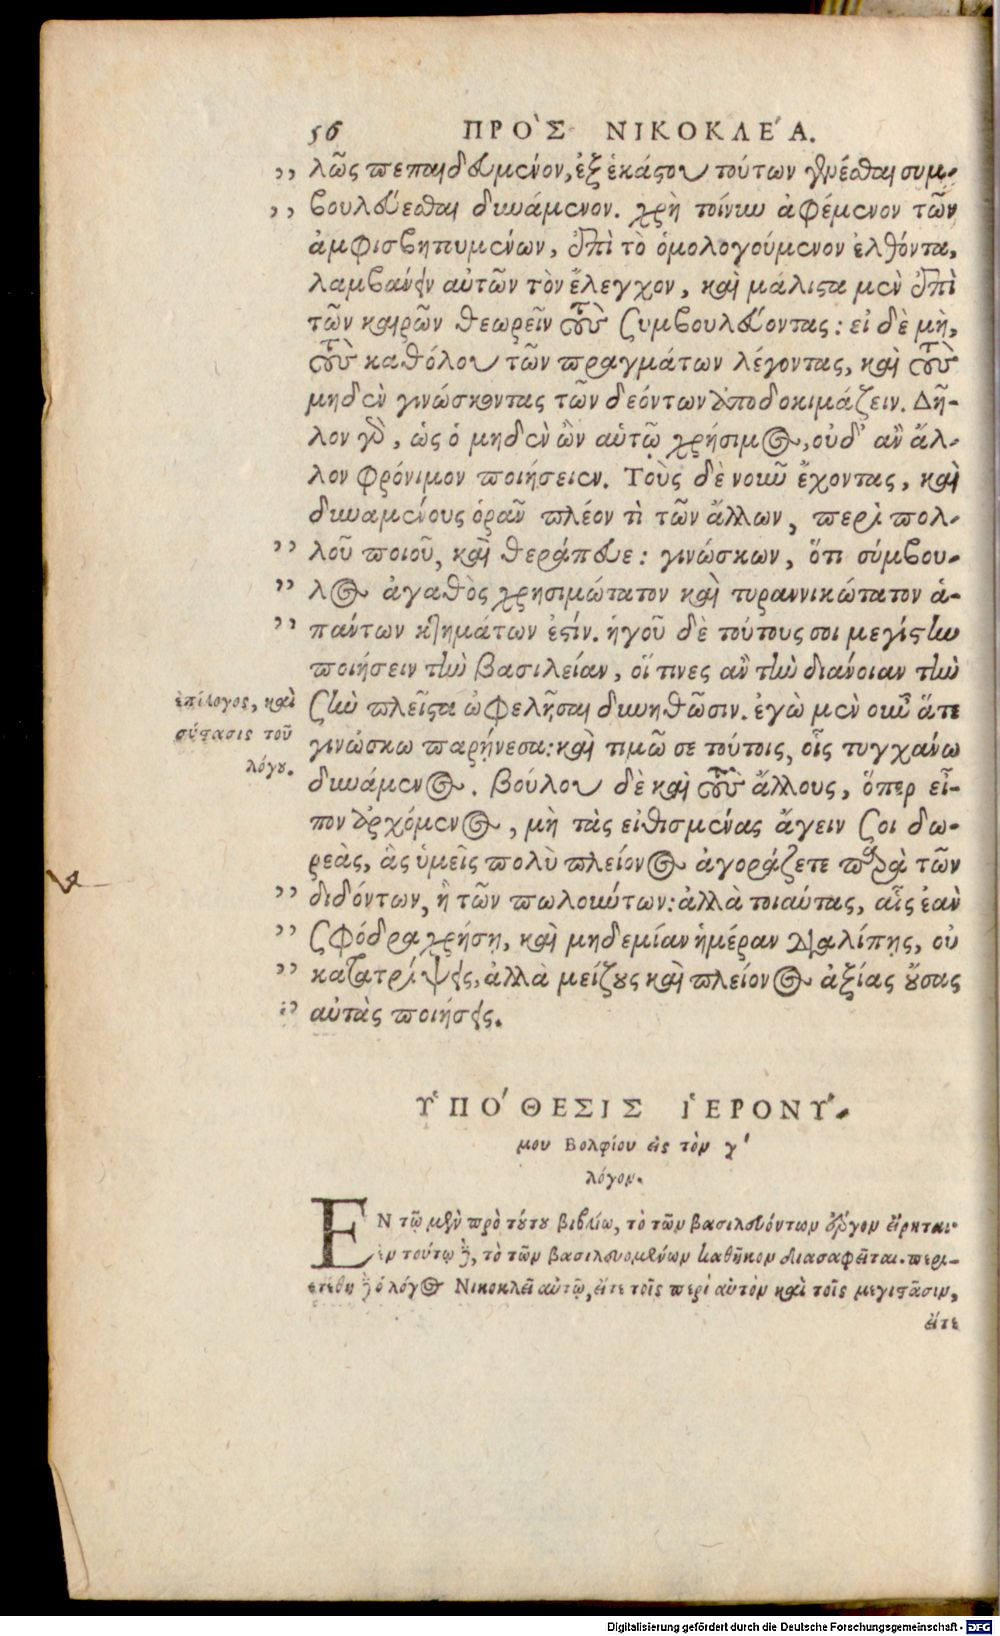 56 ΠΡΟ`Σ ΝΙΚΟΚΛΕ´Α.
,, λῶς πεπαιδευμένον, ἐξ ἑκάστου τούτων γενέσθαι συμ-
,, βουλεύεσθαι δυνάμενον. χρὴ τοίνυν ἀφέμενον τῶν
ἀμφισβητυμένων, ἐπὶ τὸ ὁμολογούμενον ἐλθόντα,
λαμβάνειν αὐτῶν τὸν ἔλεγχον, καὶ μάλιστα μὲν ἐπὶ
τῶν καιρῶν θεωρεῖν τοὺς συμβουλεύοντας: εἰ δὲ μὴ,
τοὺς καθόλου τῶν πραγμάτων λέγοντας, καὶ τοὺς
μηδὲν γινώσκοντας τῶν δεόντων ἀποδοκιμάζειν. Δῆ-
λον γὰρ, ὡς ὁ μηδὲν ὢν αὑτῷ χρήσιμος, οὐδ' ἂν ἄλ-
λον φρόνιμον ποιήσειεν. Τοὺς δὲ νοῦν ἔχοντας, καὶ
δυναμένους ὁρᾶν πλέον τὶ τῶν ἄλλων, περὶ πολ-
,, λοῦ ποιοῦ, καὶ θεράπευε: γινώσκων, ὅτι σύμβου-
,, λος ἀγαθὸς χρησιμώτατον καὶ τυραννικώτατον ἁ-
,, πάντων κτημάτων ἐστίν. ἡγοῦ δὲ τούτους σοι μεγίστην
ποιήσειν τὴν βασιλείαν, οἵ τινες ἂν τὴν διάνοιαν τὴν
ἐπίλογος, καὶ σὴν πλεῖστα ὠφελῆσαι δυνηθῶσιν. ἐγὼ μὲν οὖν ἅτε
σύστασις τοῦ γινώσκω παρῄνεσα: καὶ τιμῶ σε τούτοις, οἷς τυγχάνω
λόγου. δυνάμενος. βούλου δὲ καὶ τοὺς ἄλλους, ὅπερ εἶ-
πον ἀρχόμενος, μὴ τὰς εἰθισμένας ἄγειν σοι δω-
ρεὰς, ἃς ὑμεῖς πολὺ πλείονος ἀγοράζετε παρὰ τῶν
,, διδόντων, ἢ τῶν πωλούντων: ἀλλὰ τοιαύτας, αἷς ἐὰν
,, σφόδρα χρήσῃ, καὶ μηδεμίαν ἡμέραν διαλίπῃς, οὐ
,, κατατρίψεις, ἀλλὰ μείζους καὶ πλείονος ἀξίας οὔσας
,, αὐτὰς ποιήσεις.
ὙΠΟ´ΘΕΣΙΣ ἹΕΡΟΝΥ´-
μου Βολφίου εἰς τὸν γ'
λόγον.
ΕΝ τῷ μὲν πρὸ τούτου βιβλίῳ, τὸ τῶν βασιλευόντων ἔργον εἴρηται·
ἐν τούτῳ δὲ, τὸ τῶν βασιλευομένων καθῆκον διασαφεῖται. περι-
ετέθη δὲ ὁ λόγος Νικοκλεῖ αὐτῷ, εἴτε τοῖς περὶ αὐτὸν καὶ τοῖς μεγιστᾶσιν,
εἴτε
Digitalisierung gefördert durch die Deutsche Forschungsgemeinschaft - DFG